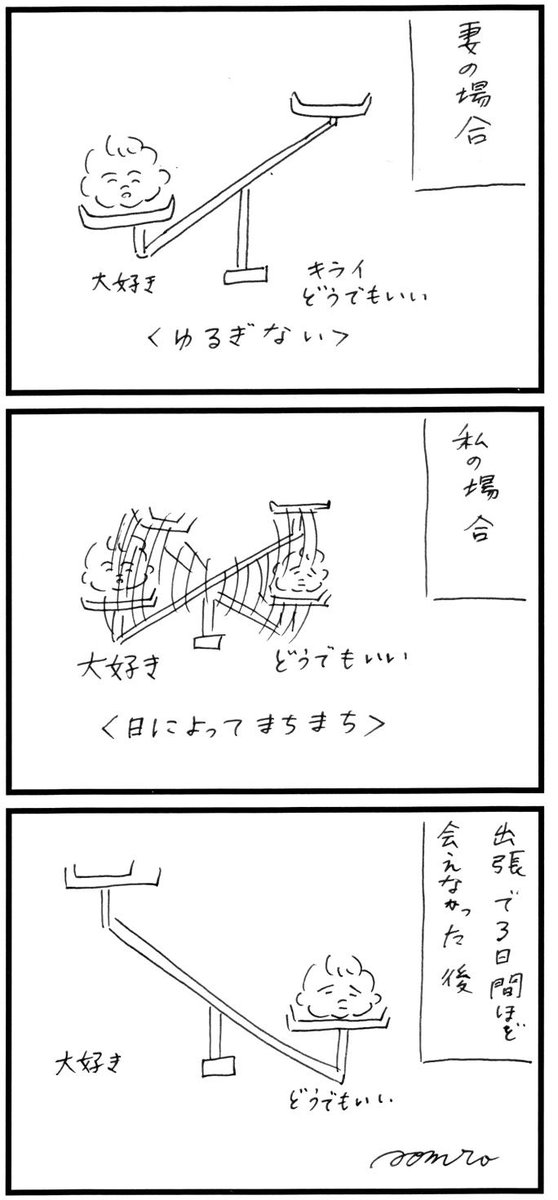 妻の場合
大好き
キライ
どうでもいい
<ゆるぎない>
私の場合
大好き
どうでもいい
<日によってまちまち>
出張で3日間ほど
会えなかった後
大好き
どうでもいい